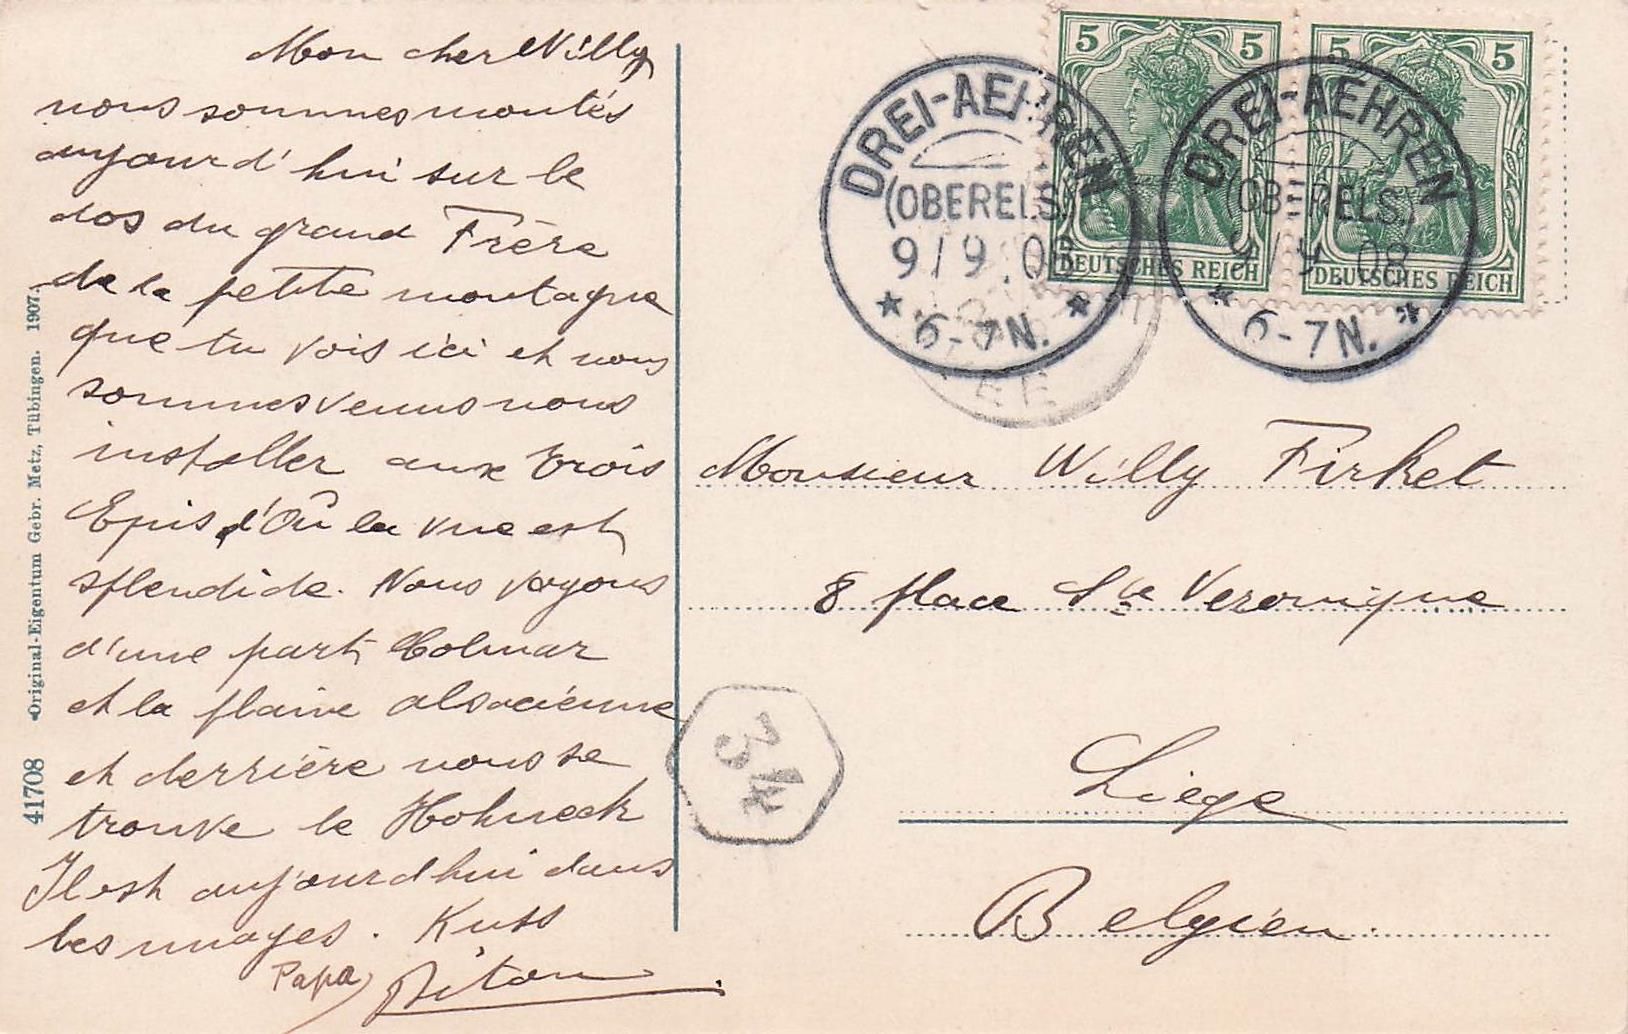 Mon cher Willy
nous sommes montés
aujourd'hui sur le
dos du grand Frère
de la petite montagne
que tu vois ici et nous
sommes venus nous
installer aux trois
Epis d'Où la vue est
splendide. Nous voyons
d'une part Colmar
et la plaine alsacienne
et derrière nous se
trouve le Hohneck
Il est aujourd'hui dans
les nuages. Kuss
Papa
41708 Original-Eigentum Gebr. Metz, Tübingen. 1907.
5 5
DEUTSCHES REICH
5 5
DEUTSCHES REICH
DREI-AEHREN
(OBERELS.)
9/9.08
6-7N.
DREI-AEHREN
(OBERELS.)
9/9.08
6-7N.
Monsieur Willy Firket
8 place Ste Veronique
Liège
Belgien